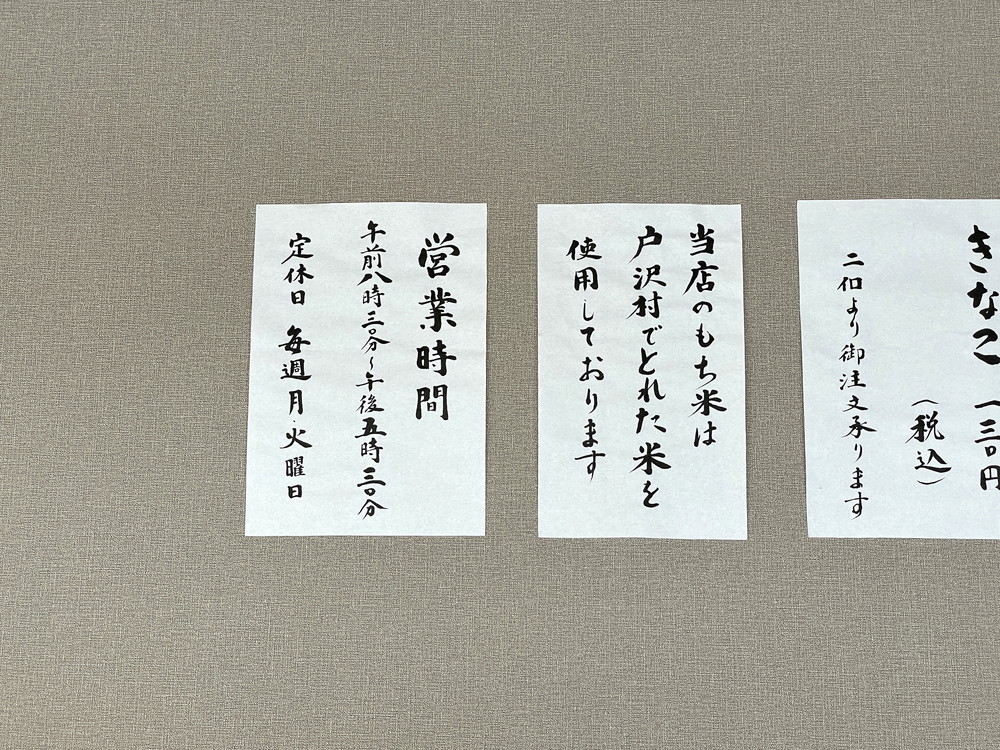 きなこ 一三〇円
(税込)
二個より御注文承ります
当店のもち米は
戸沢村でとれた米を
使用しております
営業時間
午前八時三〇分～午後五時三〇分
定休日 毎週月・火曜日